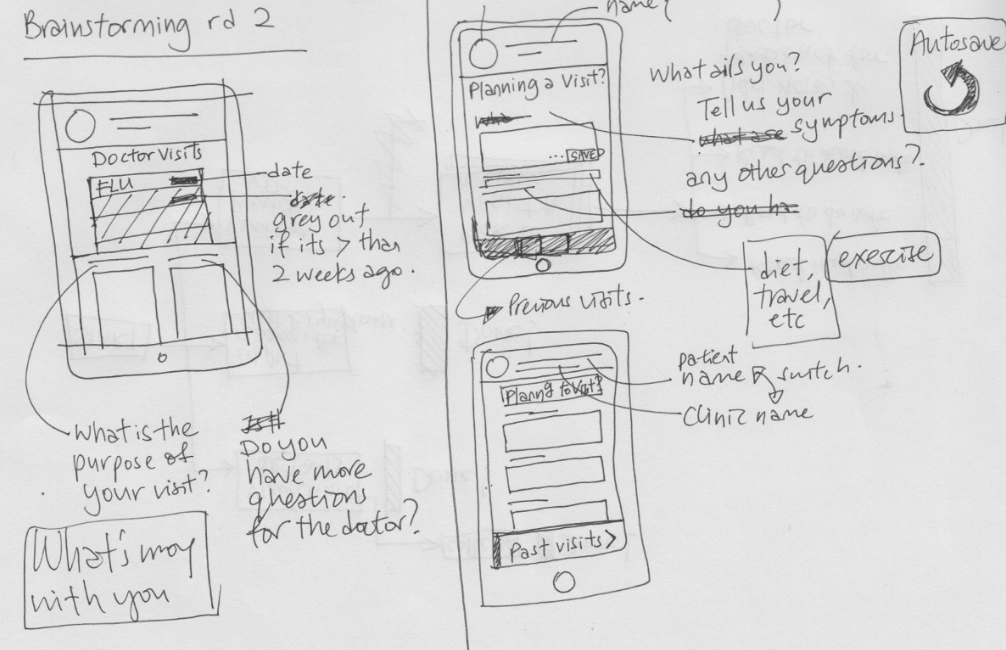 Brainstorming rd 2
Doctor Visits
FLU
date
date
grey out
if its > than
2 weeks ago.
What is the
purpose of
your visit?
Do you
have more
questions
for the doctor?
What's
with you
name
Planning a Visit?
... SAVE
What ails you?
Tell us your
what are symptoms.
any other questions?
do you
diet,
travel,
etc
exercise
Autosave
Previous visits.
patient
name switch.
Clinic name
Past visits >